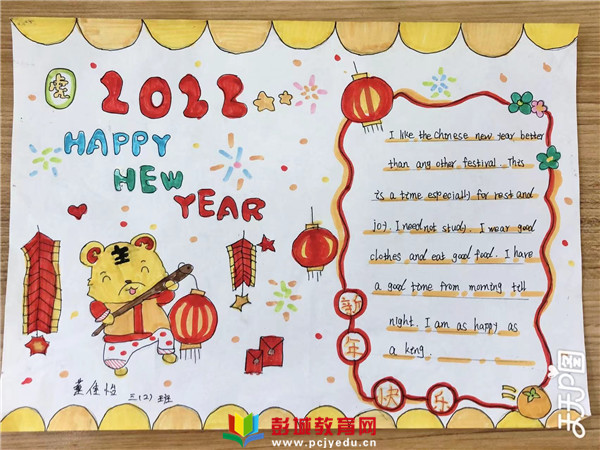 虎
2022
HAPPY
HEW
YEAR
I like the Chinese new year better
than any other festival. This
is a time especially for rest and
joy. I need not study. I wear good
clothes and eat good food. I have
a good time from morning tell
night. I am as happy as
a keng.
新
年
快
乐
三(2)班
彭城教育网
www.pcjyedu.cn
天天P图